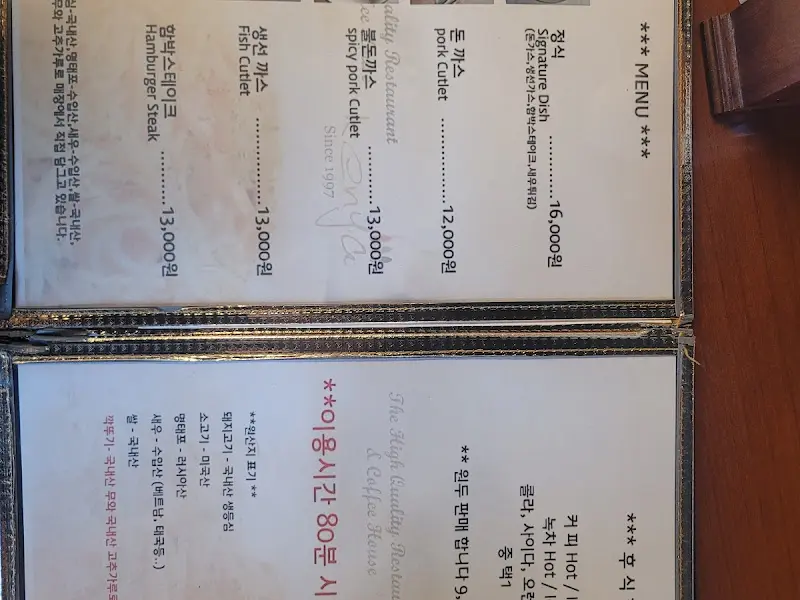 *** MENU ***
정식
Signature Dish ............16,000원
(돈가스,생선가스,함박스테이크,새우튀김)
돈 까스
pork Cutlet ..................12,000원
불돈까스
spicy pork Cutlet ...........13,000원
생선 까스
Fish Cutlet ..................13,000원
함박스테이크
Hamburger Steak ..........13,000원
국내산, 명태포-수입산, 새우-수입산, 쌀-국내산,
고춧가루로 매장에서 직접 담그고 있습니다.
ality Restaurant
Since 1997
*** 후 식
커 피 Hot /
녹차 Hot /
콜라, 사이다,
중 택1
** 원두 판매 합니다 9,
The High Quality Restau
& Coffee House
**이용시간 80분 시
**원산지 표기 **
돼지고기 - 국내산 생등심
소고기 - 미국산
명태포 - 러시아산
새우 - 수입산 (베트남, 태국등..)
쌀 - 국내산
깍뚜기- 국내산 무와 국내산 고추가루로